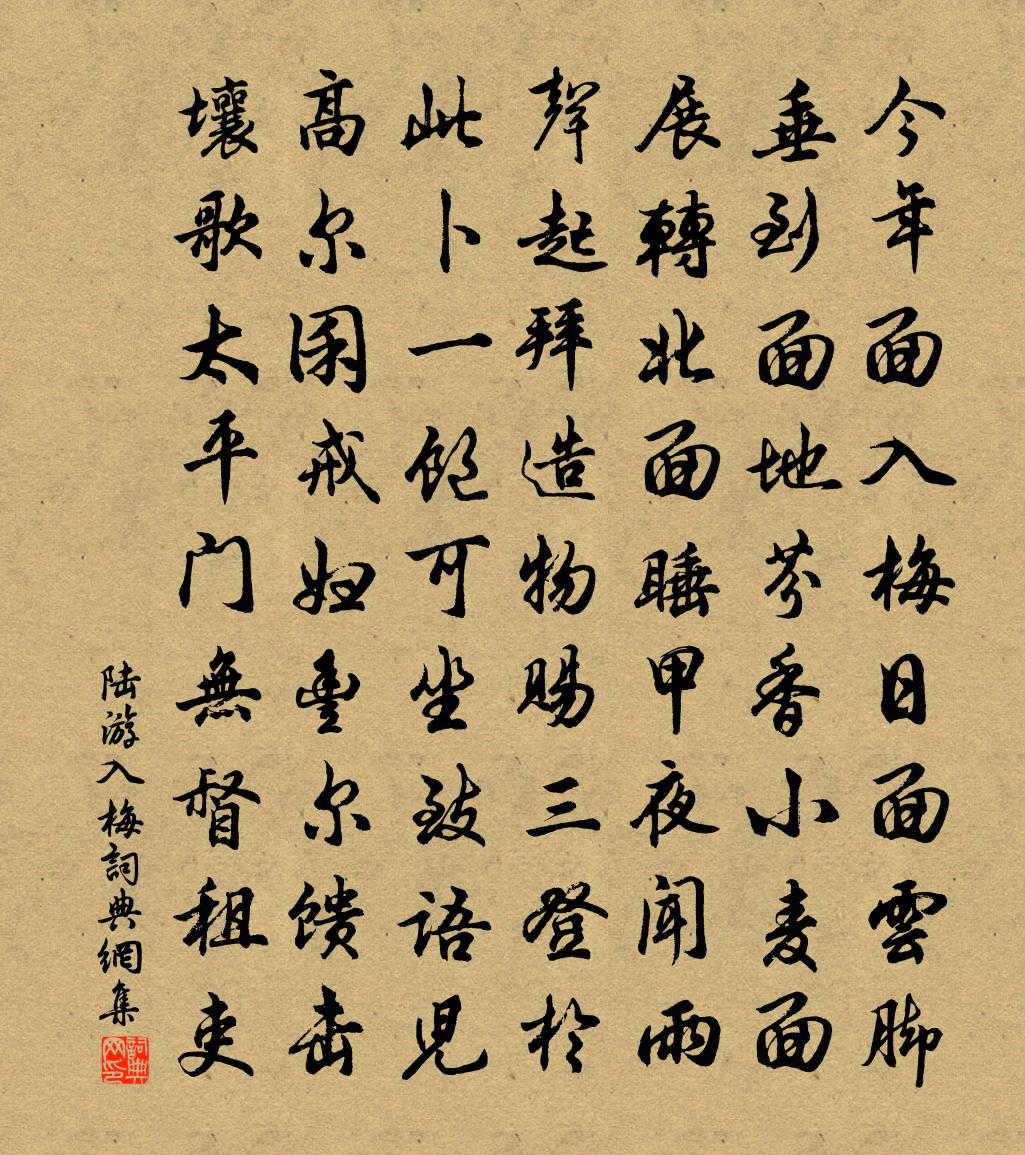 今年面入梅日面雲脚
垂到面地芬香小麦面
展轉北面睡甲夜闻雨
聲起拜造物賜三登於
此卜一飽可坐致語児
高尔囷戒妇豊尔馈击
壤歌太平门無督租吏
陆游入梅詞典網集
詞典网印